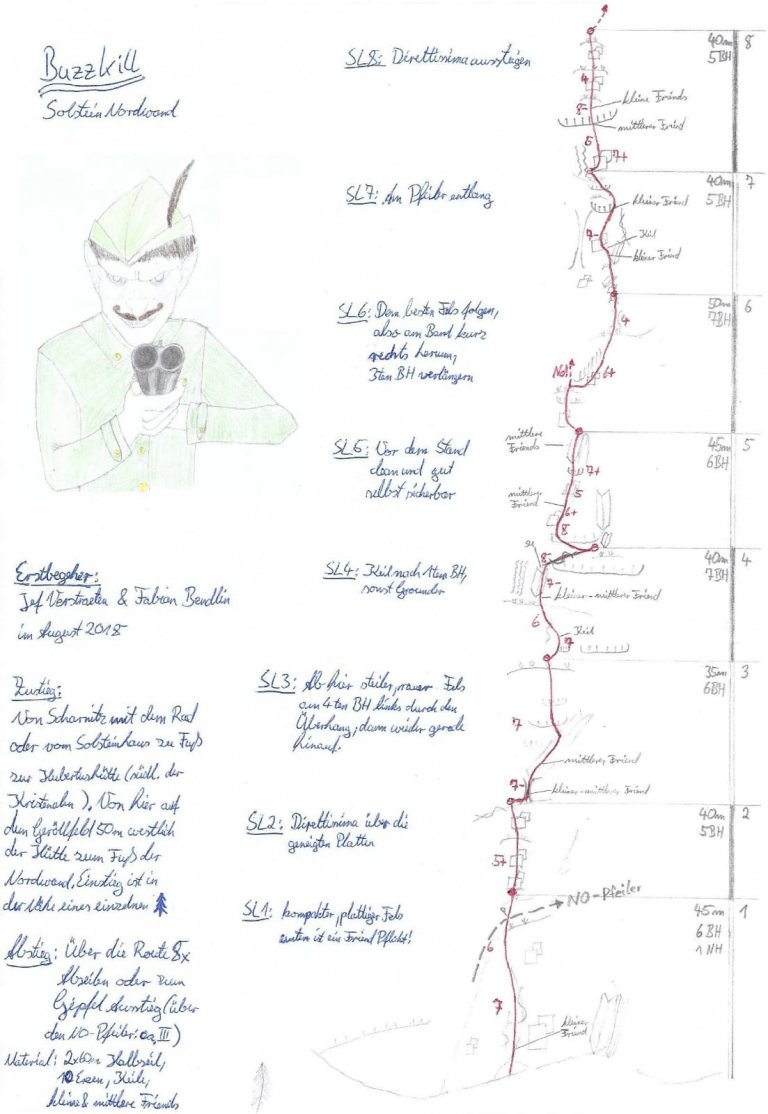 Buzzkill
Solstein Nordwand
Erstbegeher:
Jef Verstraeten & Fabian Bendlin
im August 2018
Zustieg:
Von Scharnitz mit dem Rad
oder vom Solsteinhaus zu Fuß
zur Hubertushütte (südl. der
Kristenalm). Von hier auf
dem Geröllfeld 50m westlich
der Hütte zum Fuß der
Nordwand. Einstieg ist in
der Nähe eines einzelnen
Abstieg: Über die Route 8x
Abseilen oder zum
Gipfel Ausstieg (über
den NO-Pfeiler: ca. III)
Material: 2x60m Halbseil,
10 Exen, Keile,
kleine & mittlere Friends
SL8: Direttissima aussteigen
SL7: Am Pfeiler entlang
SL6: Dem besten Fels folgen,
also am Band kurz
rechts herum,
3ten BH verlängern
SL5: Vor dem Stand
clean und gut
selbst sicherbar
SL4: Keil nach 1tem BH,
sonst Grounder
SL3: Ab hier steiler, rauer Fels
am 4ten BH links durch den
Überhang, dann wieder gerade
hinauf.
SL2: Direttissima über die
geneigten Platten
SL1: kompakter, plattiger Fels
unten ist ein Friend Pflicht!
40m
5BH
8
4
8-
kleine Friends
mittlerer Friend
6
7+
40m
5BH
7
kleiner Friend
7-
Keil
kleiner Friend
50m
7BH
6
4
6+
No!
45m
6BH
5
mittlere
Friends
7+
5
mittlerer
Friend
6+
8
40m
7BH
4
8-
7-
kleiner-mittlerer Friend
6
Keil
7
35m
6BH
3
7
mittlerer Friend
7-
kleiner-mittlerer Friend
40m
5BH
2
5+
NO-Pfeiler
45m
6BH
1NH
1
6
7
kleiner
Friend